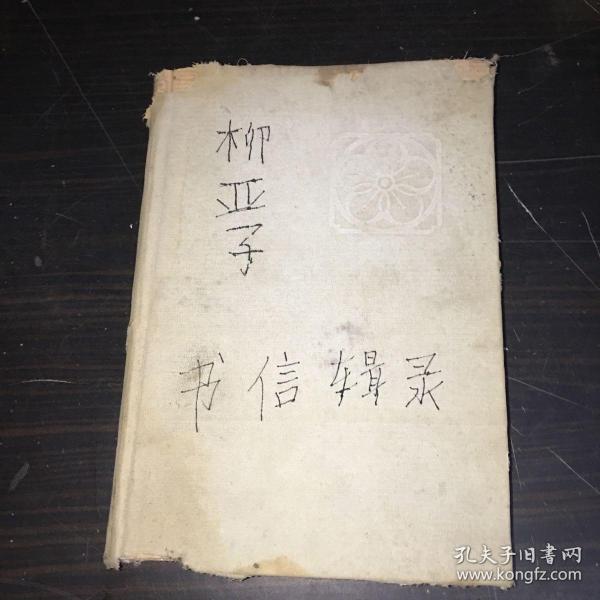 柳亚子
书信辑录
孔夫子旧書网
www.kongfz.com